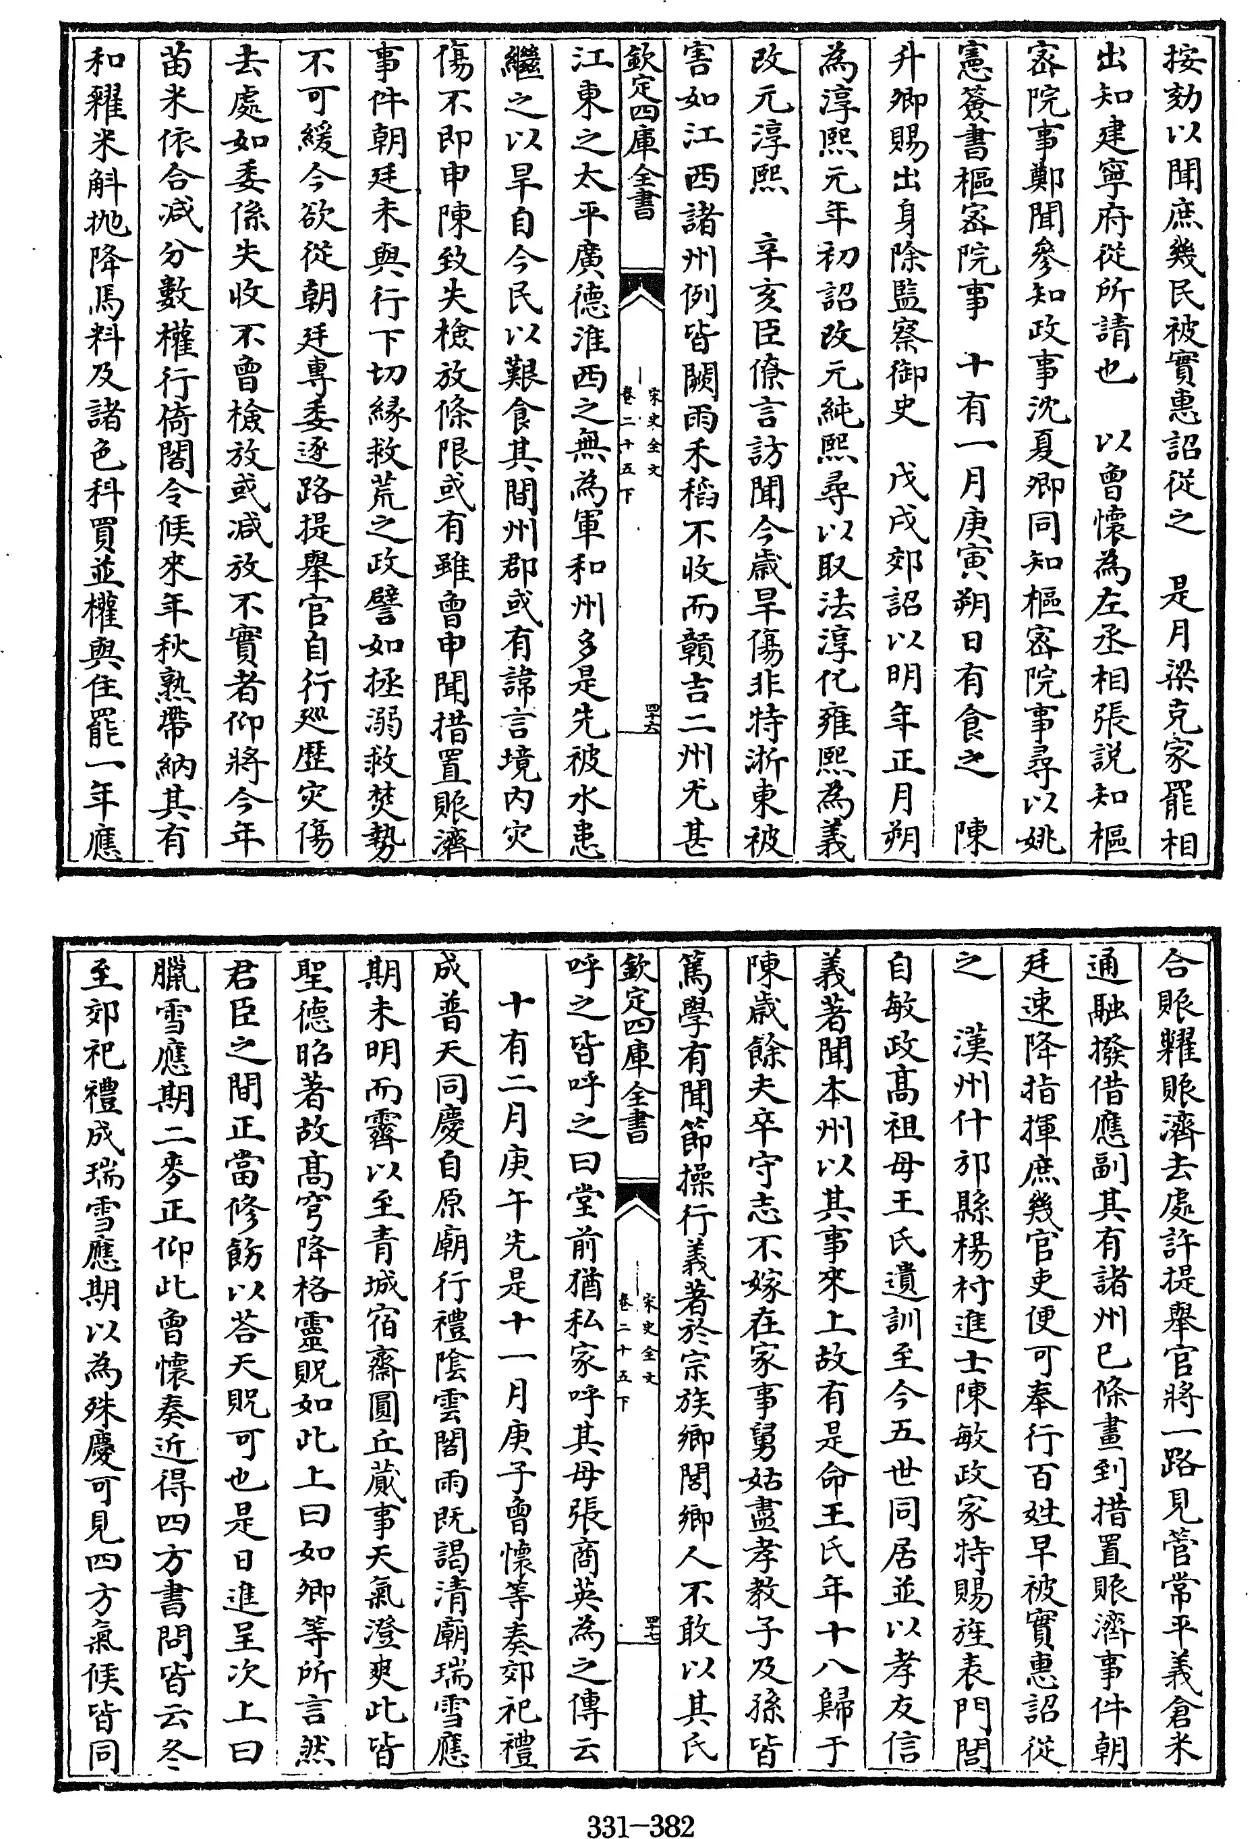 按劾以聞庶幾民被實惠詔從之　是月梁克家罷相
出知建寧府從所請也　以曾懷為左丞相張說知樞
密院事鄭聞參知政事沈夏卿同知樞密院事尋以姚
憲簽書樞密院事　十有一月庚寅朔日有食之　陳
升卿賜出身除監察御史　戊戌郊詔以明年正月朔
為淳熙元年初詔改元純熙尋以取法淳化雍熙為義
改元淳熙　辛亥臣僚言訪聞今歲旱傷非特浙東被
害如江西諸州例皆闕雨禾稻不收而贛吉二州尤甚
欽定四庫全書
宋史全文
卷二十五下
四十六
江東之太平廣德淮西之無為軍和州多是先被水患
繼之以旱自今民以艱食其間州郡或有諱言境內灾
傷不即申陳致失檢放條限或有雖曾申聞措置賑濟
事件朝廷未與行下切緣救荒之政譬如拯溺救焚勢
不可緩今欲從朝廷專委逐路提舉官自行廵歷灾傷
去處如委係失收不曾檢放或減放不實者仰將今年
苗米依合減分數權行倚閣令候來年秋熟帶納其有
和糴米斛拋降馬料及諸色科買並權與住罷一年應
合賑糶賑濟去處許提舉官將一路見管常平義倉米
通融撥借應副其有諸州已條畫到措置賑濟事件朝
廷速降指揮庶幾官吏便可奉行百姓早被實惠詔從
之　漢州什邡縣楊村進士陳敏政家特賜旌表門閭
自敏政高祖母王氏遺訓至今五世同居並以孝友信
義著聞本州以其事來上故有是命王氏年十八歸于
陳歲餘夫卒守志不嫁在家事舅姑盡孝教子及孫皆
篤學有聞節操行義著於宗族鄉閭鄉人不敢以其氏
欽定四庫全書
宋史全文
卷二十五下
四十七
呼之皆呼之曰堂前猶私家呼其母張商英為之傳云
十有二月庚午先是十一月庚子曾懷等奏郊祀禮
成普天同慶自原廟行禮陰雲閣雨既謁清廟瑞雪應
期未明而霽以至青城宿齋圓丘蕆事天氣澄爽此皆
聖德昭著故高穹降格靈貺如此上曰如卿等所言然
君臣之間正當修飭以荅天貺可也是日進呈次上曰
臘雪應期二麥正仰此曾懷奏近得四方書問皆云冬
至郊祀禮成瑞雪應期以為殊慶可見四方氣候皆同
331-382